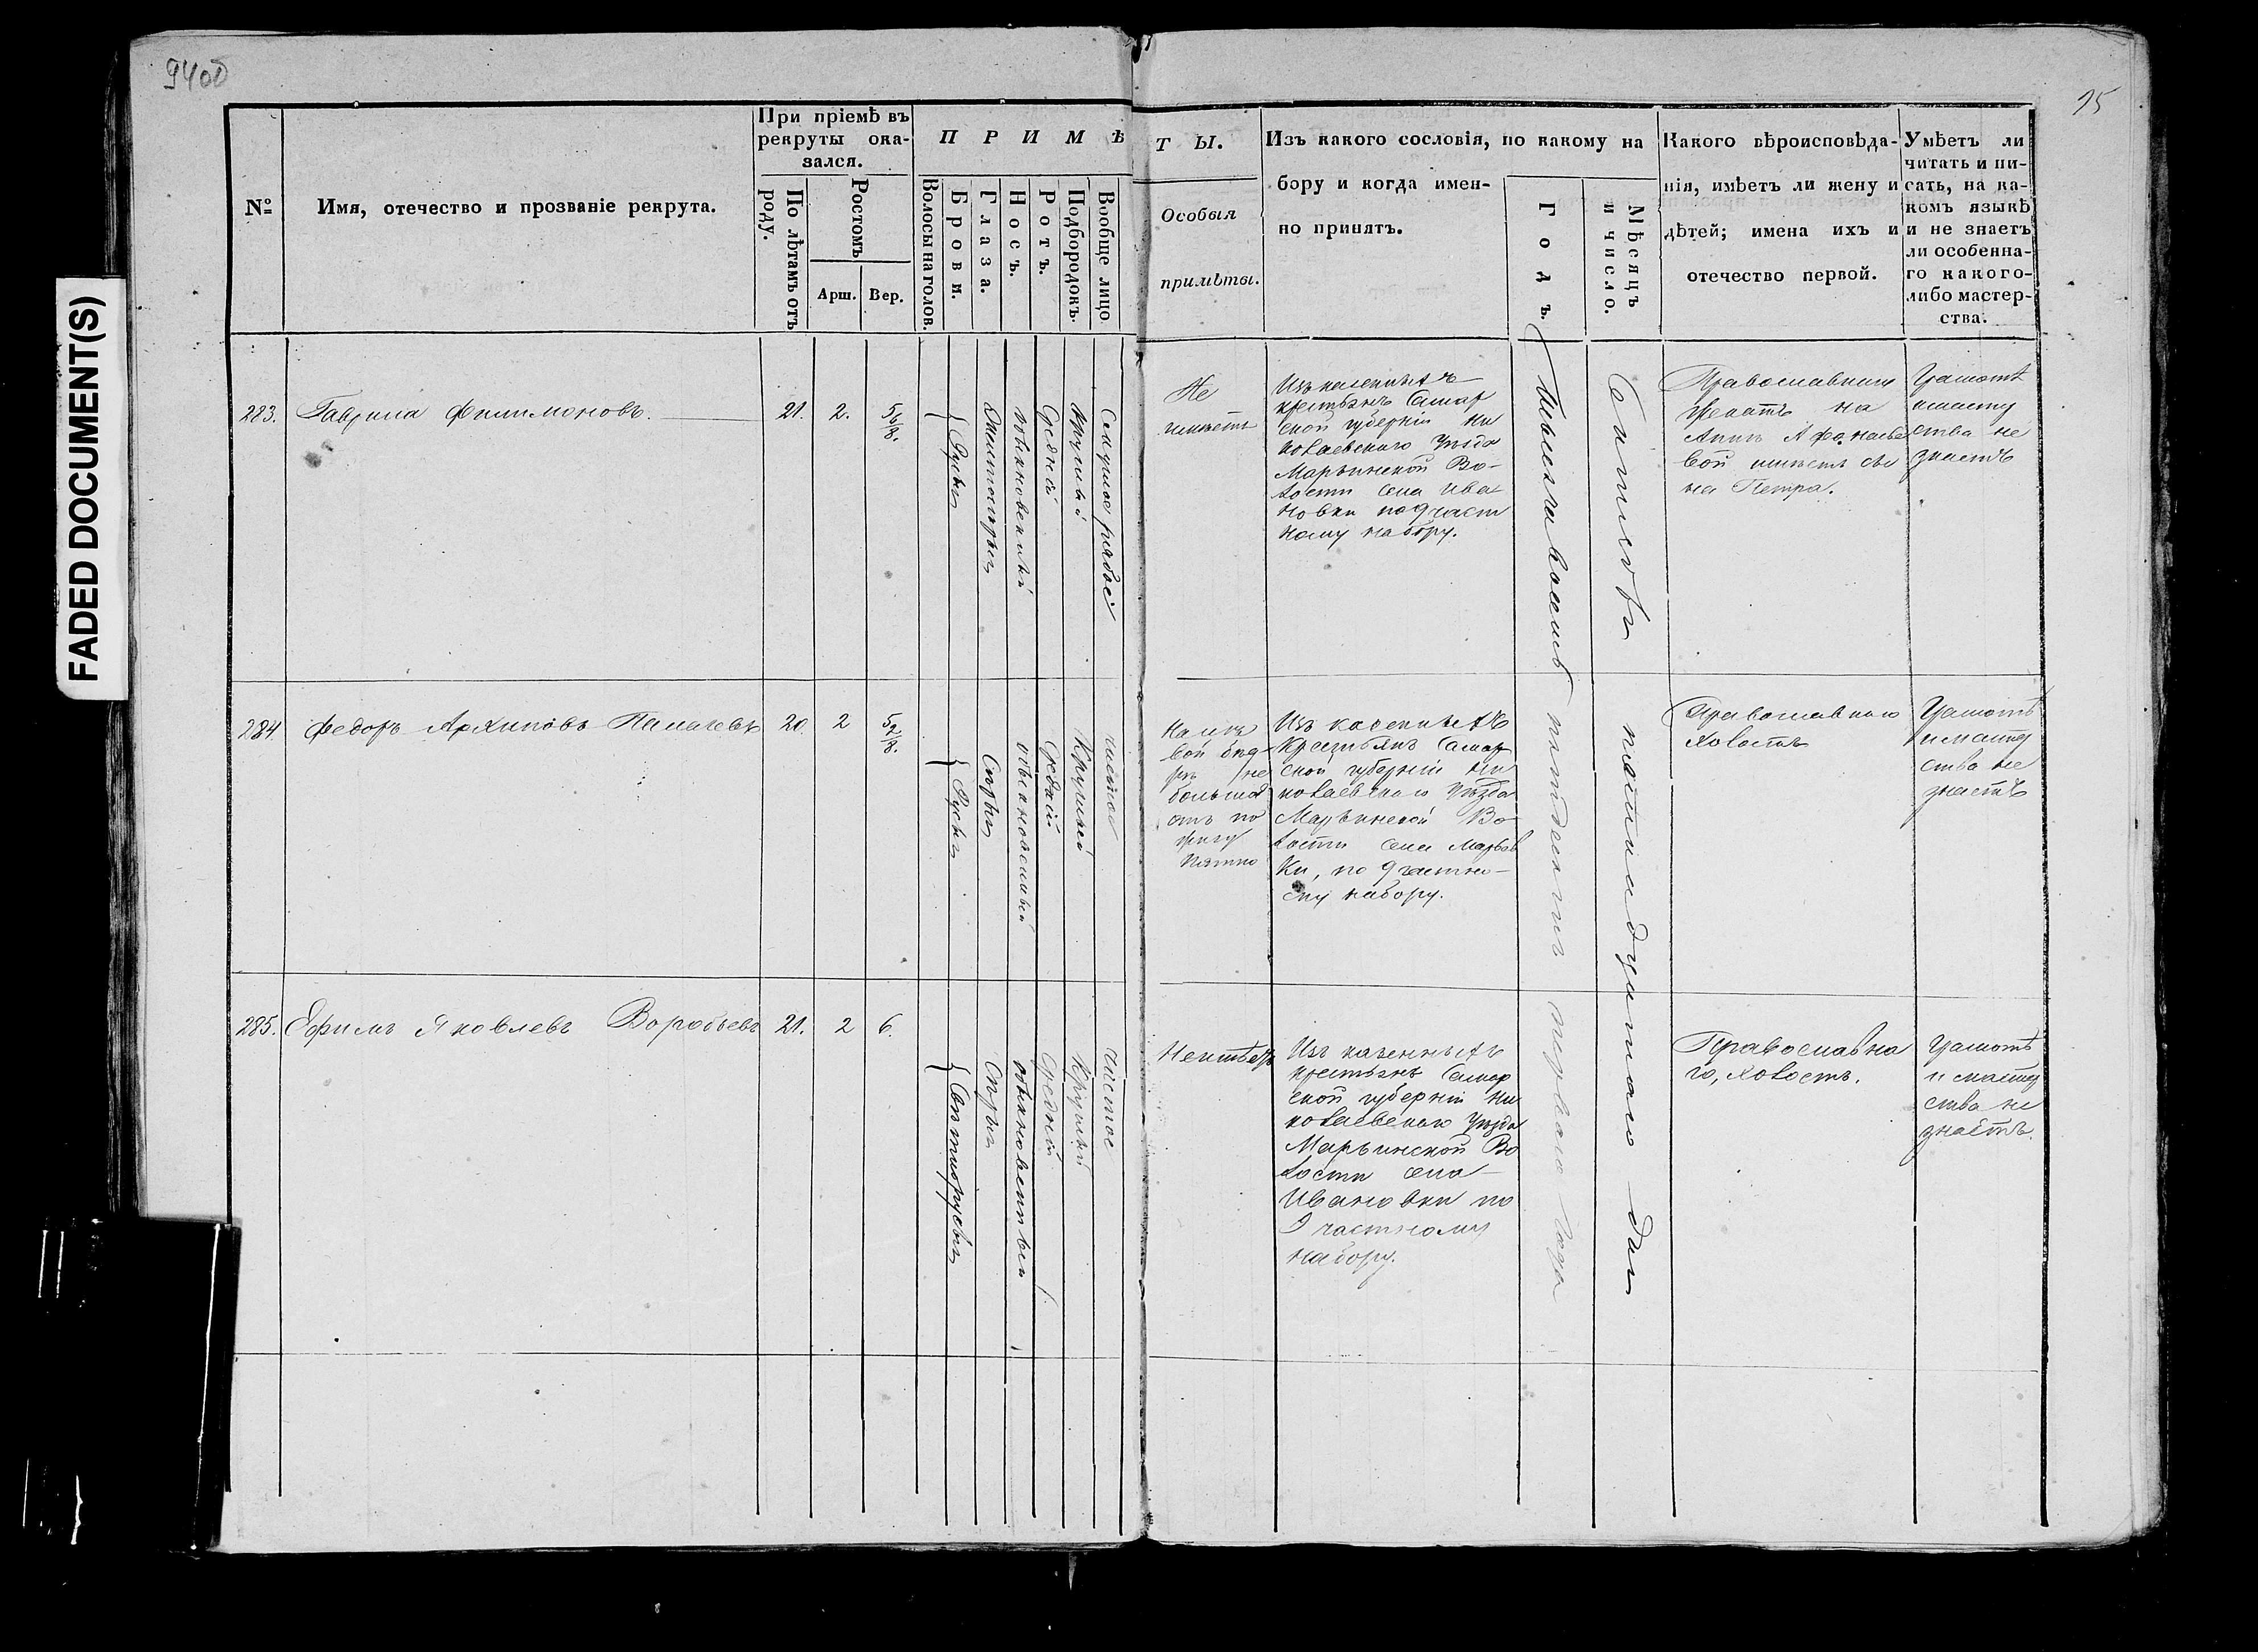 FADED DOCUMENT(S)
94об
95
№
Имя, отечество и прозваніе рекрута.
При пріемѣ въ
рекруты ока-
зался.
По лѣтамъ отъ
роду.
Ростомъ
Арш.
Вер.
ПРИМѢ
Волосы на голов.
Брови.
Глаза.
Носъ.
Ротъ.
Подбородокъ.
Вообще лицо.
ТЫ.
Особыя
примѣты.
Изъ какого сословія, по какому на
бору и когда имен-
но принятъ.
Годъ.
Мѣсяцъ
и число.
Какого вѣроисповѣда-
нія, имѣетъ ли жену и
дѣтей; имена ихъ и
отечество первой.
Умѣетъ ли
читать и пи-
сать, на ка-
комъ языкѣ
и не знаетъ
ли особенна-
го какого-
либо мастер-
ства.
283.
Гаврила Филимоновъ.
21.
2.
Русы
обыкновенный
Средній
Круглый
рябое
Не
имѣетъ
Изъ казенныхъ
крестьянъ Самар
ской губерніи Ни
колаевскаго Уѣзда
Марьинской Во-
лости села Ива
новки по 9 част
ному набору.
Православнаго
женатъ на
Аннѣ Афонасье
вой имѣетъ сы
на Петра.
Грамотѣ
и масте
ства не
знаетъ
284
Федоръ Архиповъ
20.
2
5 2/8.
Русы
Сѣры
обыкновенный
Средній
Круглый
чистое
На лѣ
вой бед
рѣ не
большое
отъ по
пятно
Изъ казенныхъ
Крестьянъ Самар
ской губерніи Ни
колаевскаго Уѣзда
Марьинской Во
лости села Марьев
ки, по 9 частно-
му набору.
Православнаго
холостъ
Грамотѣ
и масте
ства не
знаетъ
285.
Ефимъ Яковлевъ Воробьевъ
21.
2
6.
Свѣтлорусы
Сѣры
обыкновенный
Средній
Круглый
Чистое
Неимѣетъ
Изъ казенныхъ
крестьянъ Самар
ской губерніи Ни
колаевскаго Уѣзда
Марьинской Во
лости села
Ивановки по
9 частному
набору.
Православна
го, холостъ.
Грамотѣ
и масте
ства не
знаетъ.
Тысяча восемь сотъ пятьдесятъ перваго года
пятнадцатаго дня